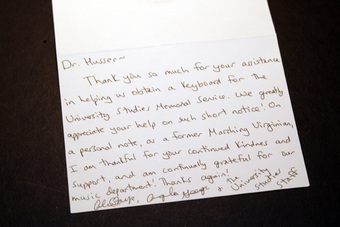 Dr. Husser~
Thank you so much for your assistance
in helping us obtain a keyboard for the
University Studies Memorial Service. We greatly
appreciate your help on such short notice! On
a personal note, as a former Marching Virginian,
I am thankful for your continued kindness and
support, and am continually grateful for our
music department! Thanks again!
+ University
Studies
Staff